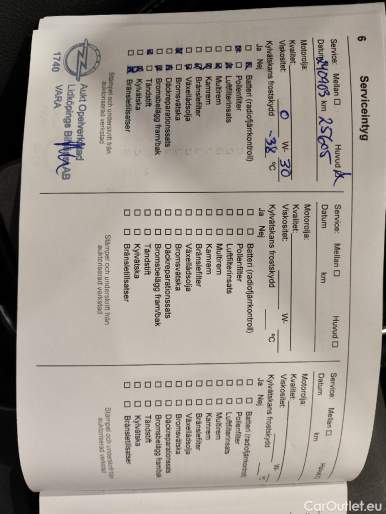 6 Serviceintyg
Service: Mellan Huvud
Datum 240903 km 25605
Motorolja:
Kvalitet:
Viskositet: 0 W- 30
Kylvätskans frostskydd -38 °C
Ja Nej
Batteri (radiofjärrkontroll)
Pollenfilter
Luftfilterinsats
Multirem
Kamrem
Bränslefilter
Växellådsolja
Bromsvätska
Däckreparationssats
Bromsbelägg fram/bak
Tändstift
Kylvätska
Bränsletillsatser
Stämpel och underskrift från
auktoriserad verkstad
Aukt Opelverkstad
Lidköpings Bil AB
1740 VARA
Service: Mellan Huvud
Datum km
Motorolja:
Kvalitet:
Viskositet: W-
Kylvätskans frostskydd °C
Ja Nej
Batteri (radiofjärrkontroll)
Pollenfilter
Luftfilterinsats
Multirem
Kamrem
Bränslefilter
Växellådsolja
Bromsvätska
Däckreparationssats
Bromsbelägg fram/bak
Tändstift
Kylvätska
Bränsletillsatser
Stämpel och underskrift från
auktoriserad verkstad
Service: Mellan
Datum km
Motorolja:
Kvalitet:
Viskositet: W-
Kylvätskans frostskydd
Ja Nej
Batteri (radiofjärrkontroll)
Pollenfilter
Luftfilterinsats
Multirem
Kamrem
Bränslefilter
Växellådsolja
Bromsvätska
Däckreparationssats
Bromsbelägg fram/bak
Tändstift
Kylvätska
Bränsletillsatser
Stämpel och underskrift från
auktoriserad verkstad
CarOutlet.eu